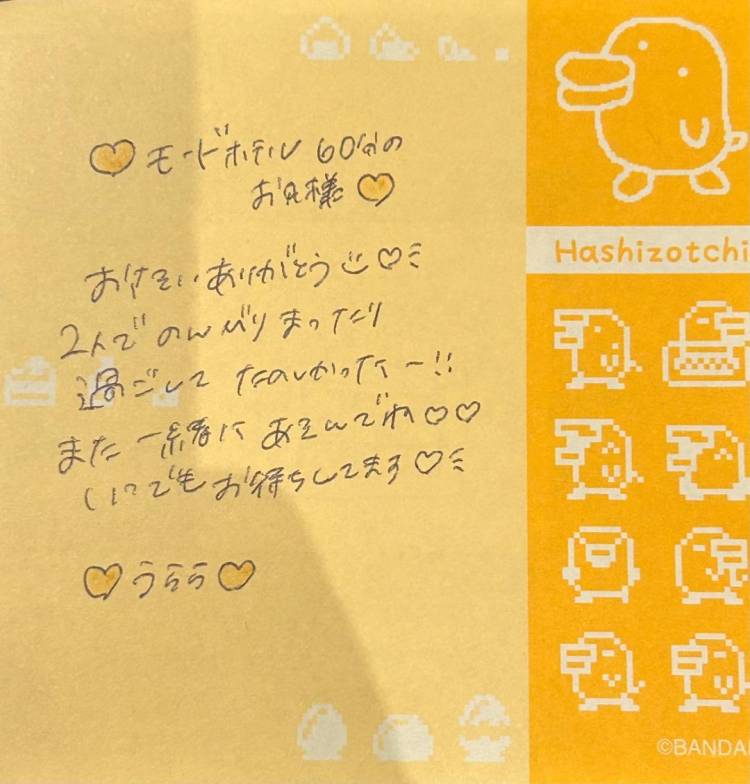 ♡モードホテル 60分の
お兄様♡
おさそいありがとう♡
2人でのんびりまったり
過ごしてたのしかったー!!
また一緒に あそんでね♡♡
いつでもお待ちしてます♡
♡うらら♡
Hashizotchi
©BANDAI